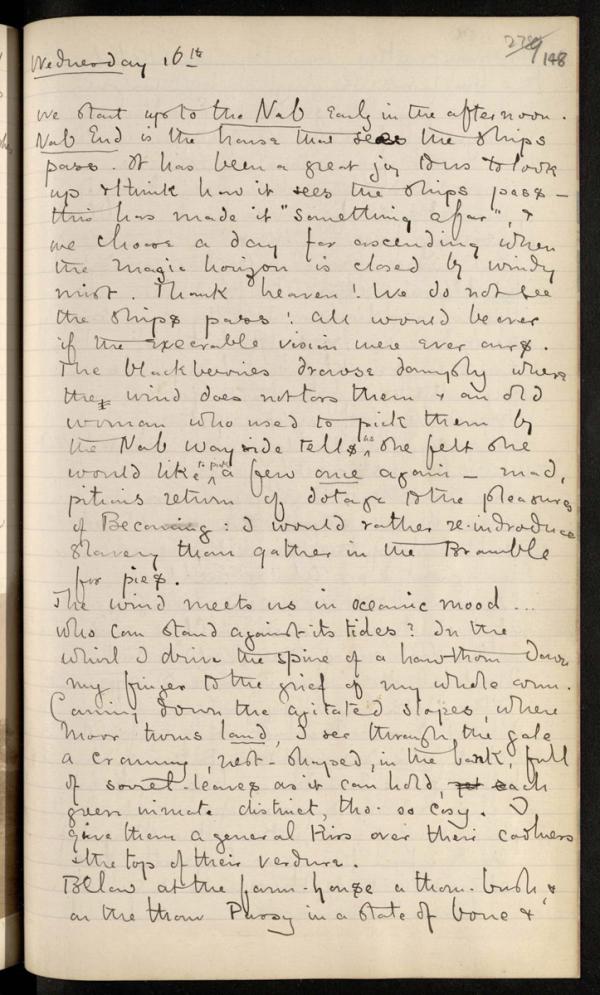 Wednesday 16th
148
we start up to the Nab early in the afternoon.
Nab End is the house that sees the ships
pass. It has been a great joy to us to look
up & think how it sees the ships pass —
this has made it "something afar", &
we choose a day for ascending when
the magic horizon is closed by windy
mist. Thank heaven! We do not see
the ships pass! All would be over
if the execrable vision were ever ours.
The blackberries drowse damply where
the wind does not toss them & an old
woman who used to pick them by
the Nab wayside tells us she felt she
would like to pick a few once again — mad,
piteous return of dotage to the pleasures
of Becoming: I would rather re-introduce
slavery than gather in the Bramble
for pies.
The wind meets us in oceanic mood ...
who can stand against its tides? In the
whirl I drive the spine of a hawthorn down
my finger to the grief of my whole arm.
Coming down the agitated slopes, where
moor turns land, I see through the gale
a cranny, nest-shaped, in the bank, full
of sorrel-leaves as it can hold, each
green inmate distinct, tho' so cosy. I
give them a general kiss over their
& the top of their verdure.
Below at the farm-house a thorn-bush &
on the thorn Pussy in a state of bone &